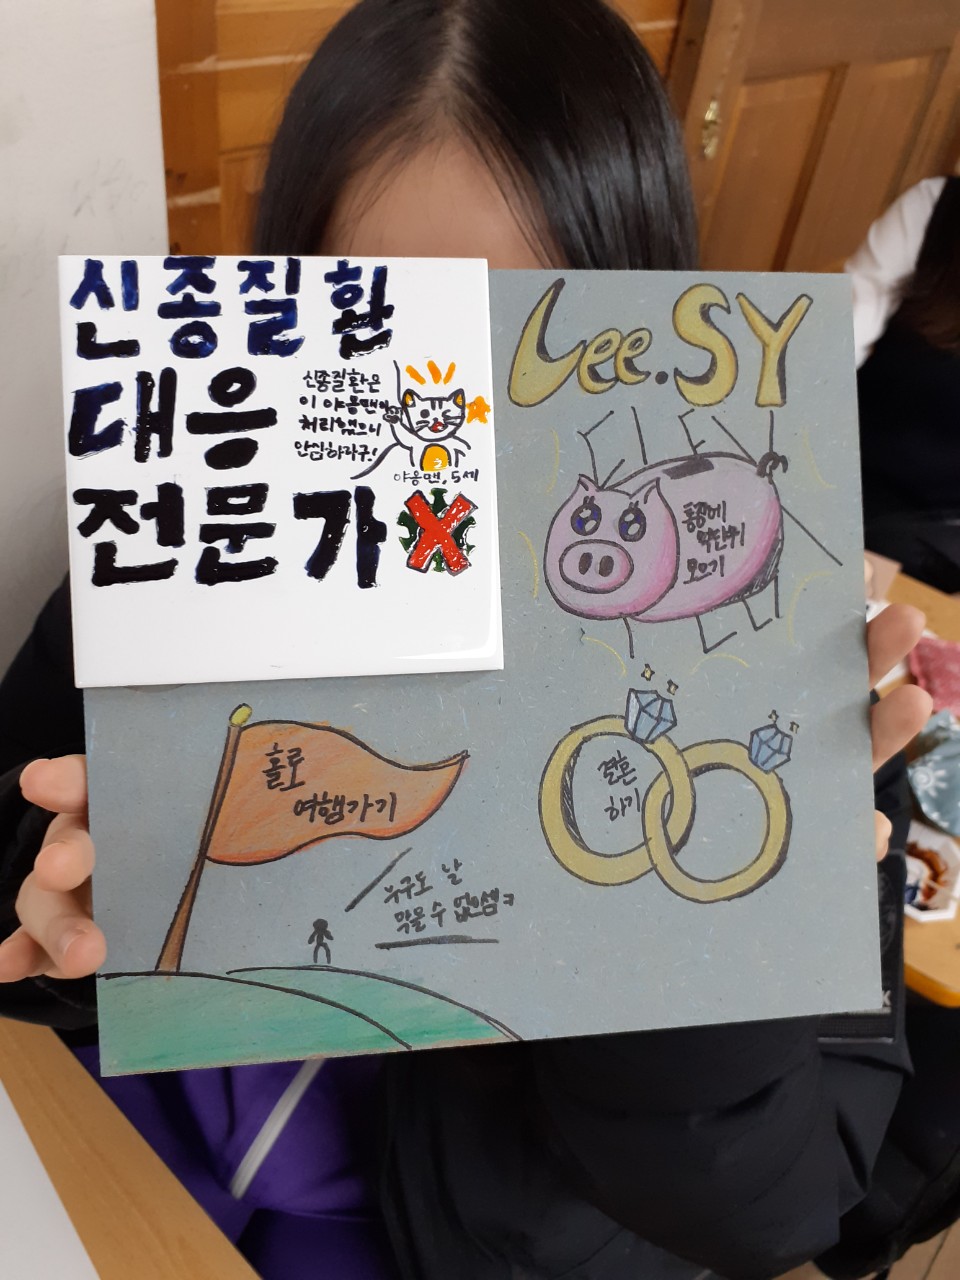 신종질환
대응
전문가
신종질환은
이 야옹맨이
처리했으니
안심하라구!
야옹맨, 5세
Lee.SY
통장에
억단위
모으기
홀로
여행가기
누구도 날
막을 수 없으셈ㅋ
결혼
하기